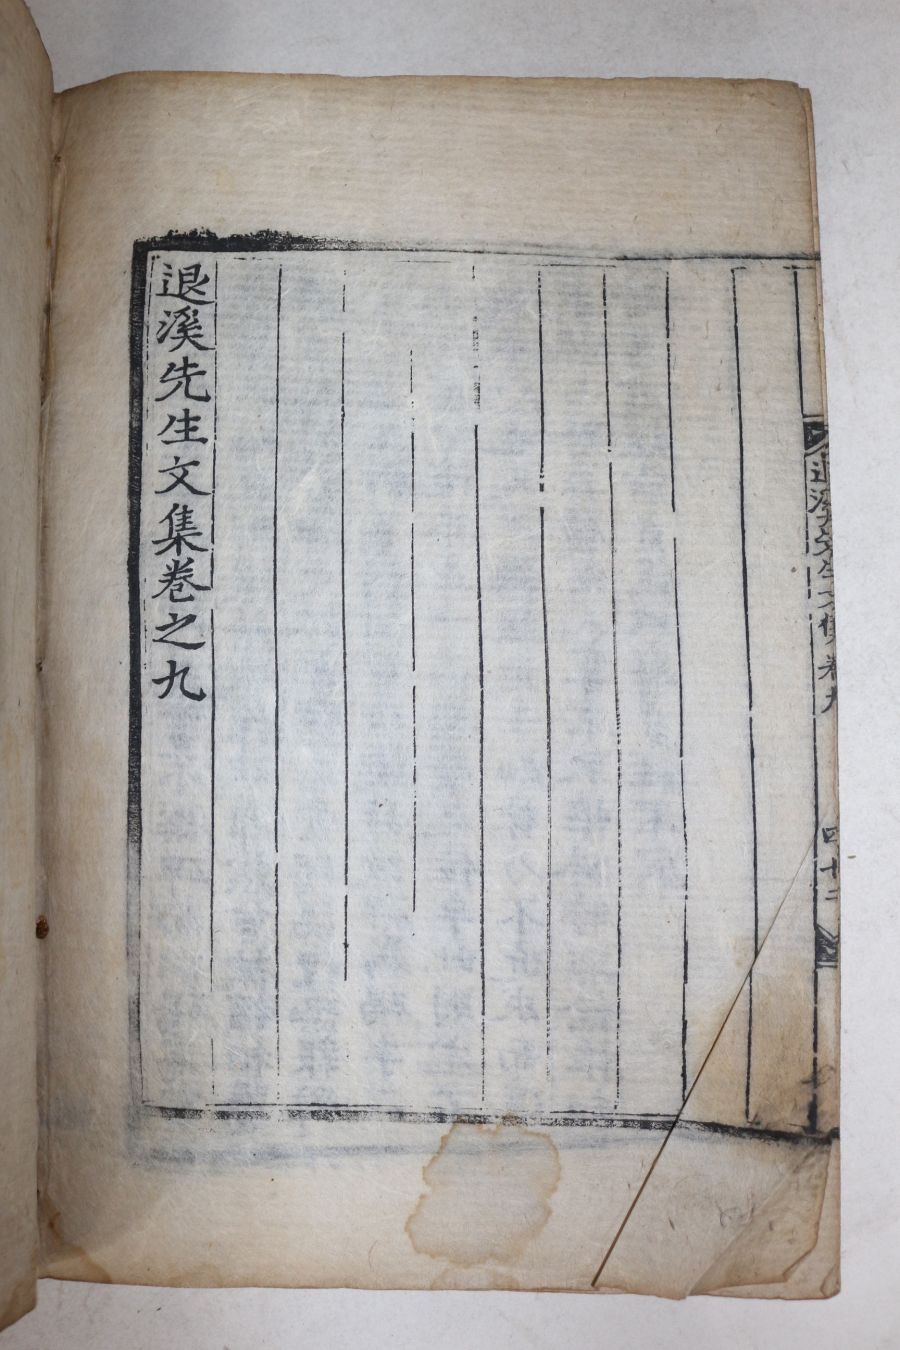 退溪先生文集卷九
四十二
退溪先生文集卷之九